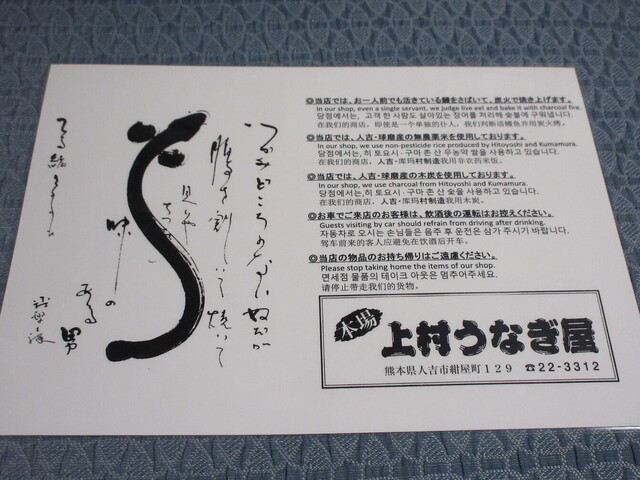 つかみどころのない奴だが
腹を割いて焼いて
味
のある男
◎当店では、お一人前でも活きている鰻をさばいて、炭火で焼き上げます。
In our shop, even a single servant, we judge live eel and bake it with charcoal fire.
당점에서는, 고객 한 사람도 살아있는 장어를 처리해 숯불에 구워냅니다.
在我们的商店，即使是一个单独的仆人，我们判断活鳗鱼并用炭火烤。
◎当店では、人吉・球磨産の無農薬米を使用しております。
In our shop, we use non-pesticide rice produced by Hitoyoshi and Kumamura.
당점에서는, 히토요시・구마 촌산 우농약 쌀을 사용하고 있습니다.
在我们的商店，人吉・库玛村制造我用非农药米饭。
◎当店では、人吉・球磨産の木炭を使用しております。
In our shop, we use charcoal from Hitoyoshi and Kumamura.
당점에서는, 히토요시・구마 촌 산 숯을 사용하고 있습니다.
在我们的商店，人吉・库玛村制造我用木炭。
◎お車でご来店のお客様は、飲酒後の運転はお控えください。
Guests visiting by car should refrain from driving after drinking.
자동차로 오시는 손님들은 음주 후 운전은 삼가 주시기 바랍니다.
驾车前来的客人应避免在饮酒后开车。
◎当店の物品のお持ち帰りはご遠慮ください。
Please stop taking home the items of our shop.
면세점 물품의 테이크 아웃은 멈추어주세요.
请停止带走我们的货物。
本場
上村うなぎ屋
熊本県人吉市紺屋町129 ☎22-3312